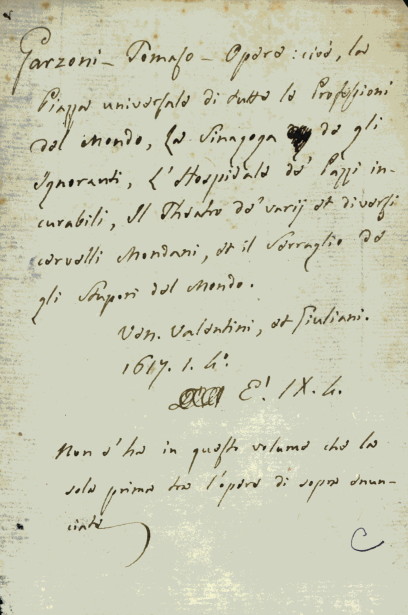 Garzoni - Tomaso - Opere : cioè, la
Piazza universale di tutte le Professioni
del Mondo, La Sinagoga de gli
Ignoranti, L'Hospidale de' Pazzi in-
curabili, Il Theatro de' varij et diversi
cervelli Mondani, et il Serraglio de
gli Stupori del Mondo.
Ven. Valentini, et Giuliani.
1617. 1. 4°.
E! IX. 4.
Non s'ha in questo volume che la
sola prima tra l'opere di sopra enun-
ciate
C